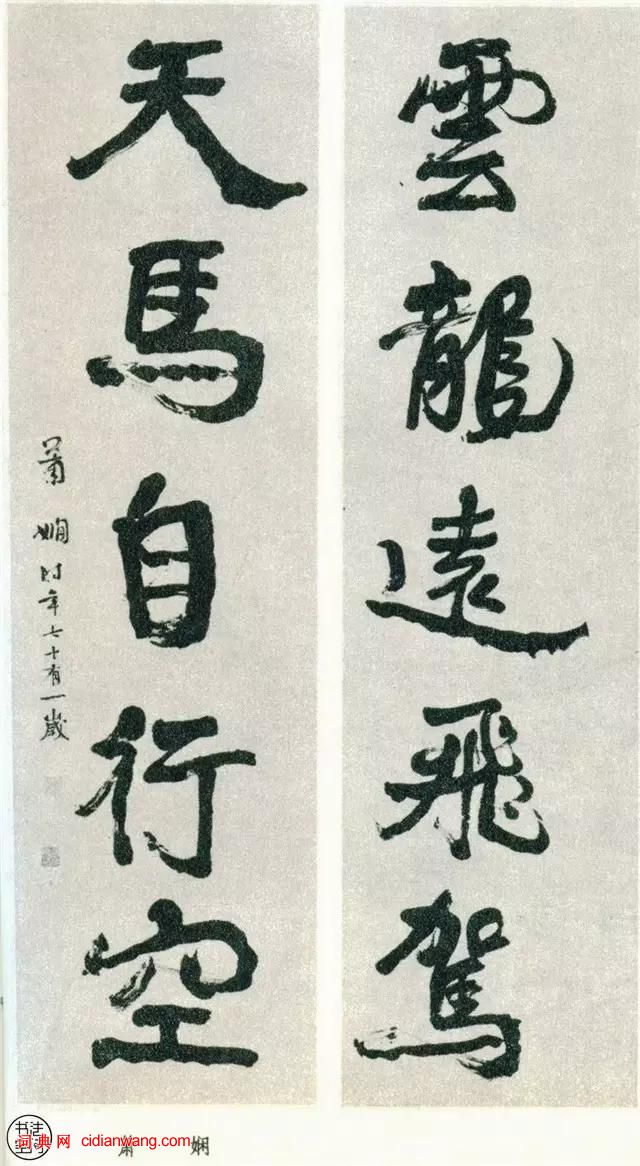 雲龍遠飛駕
天馬自行空
蕭嫻时年七十有一歲
书法空间
词典网 cidianwang.com
萧 娴